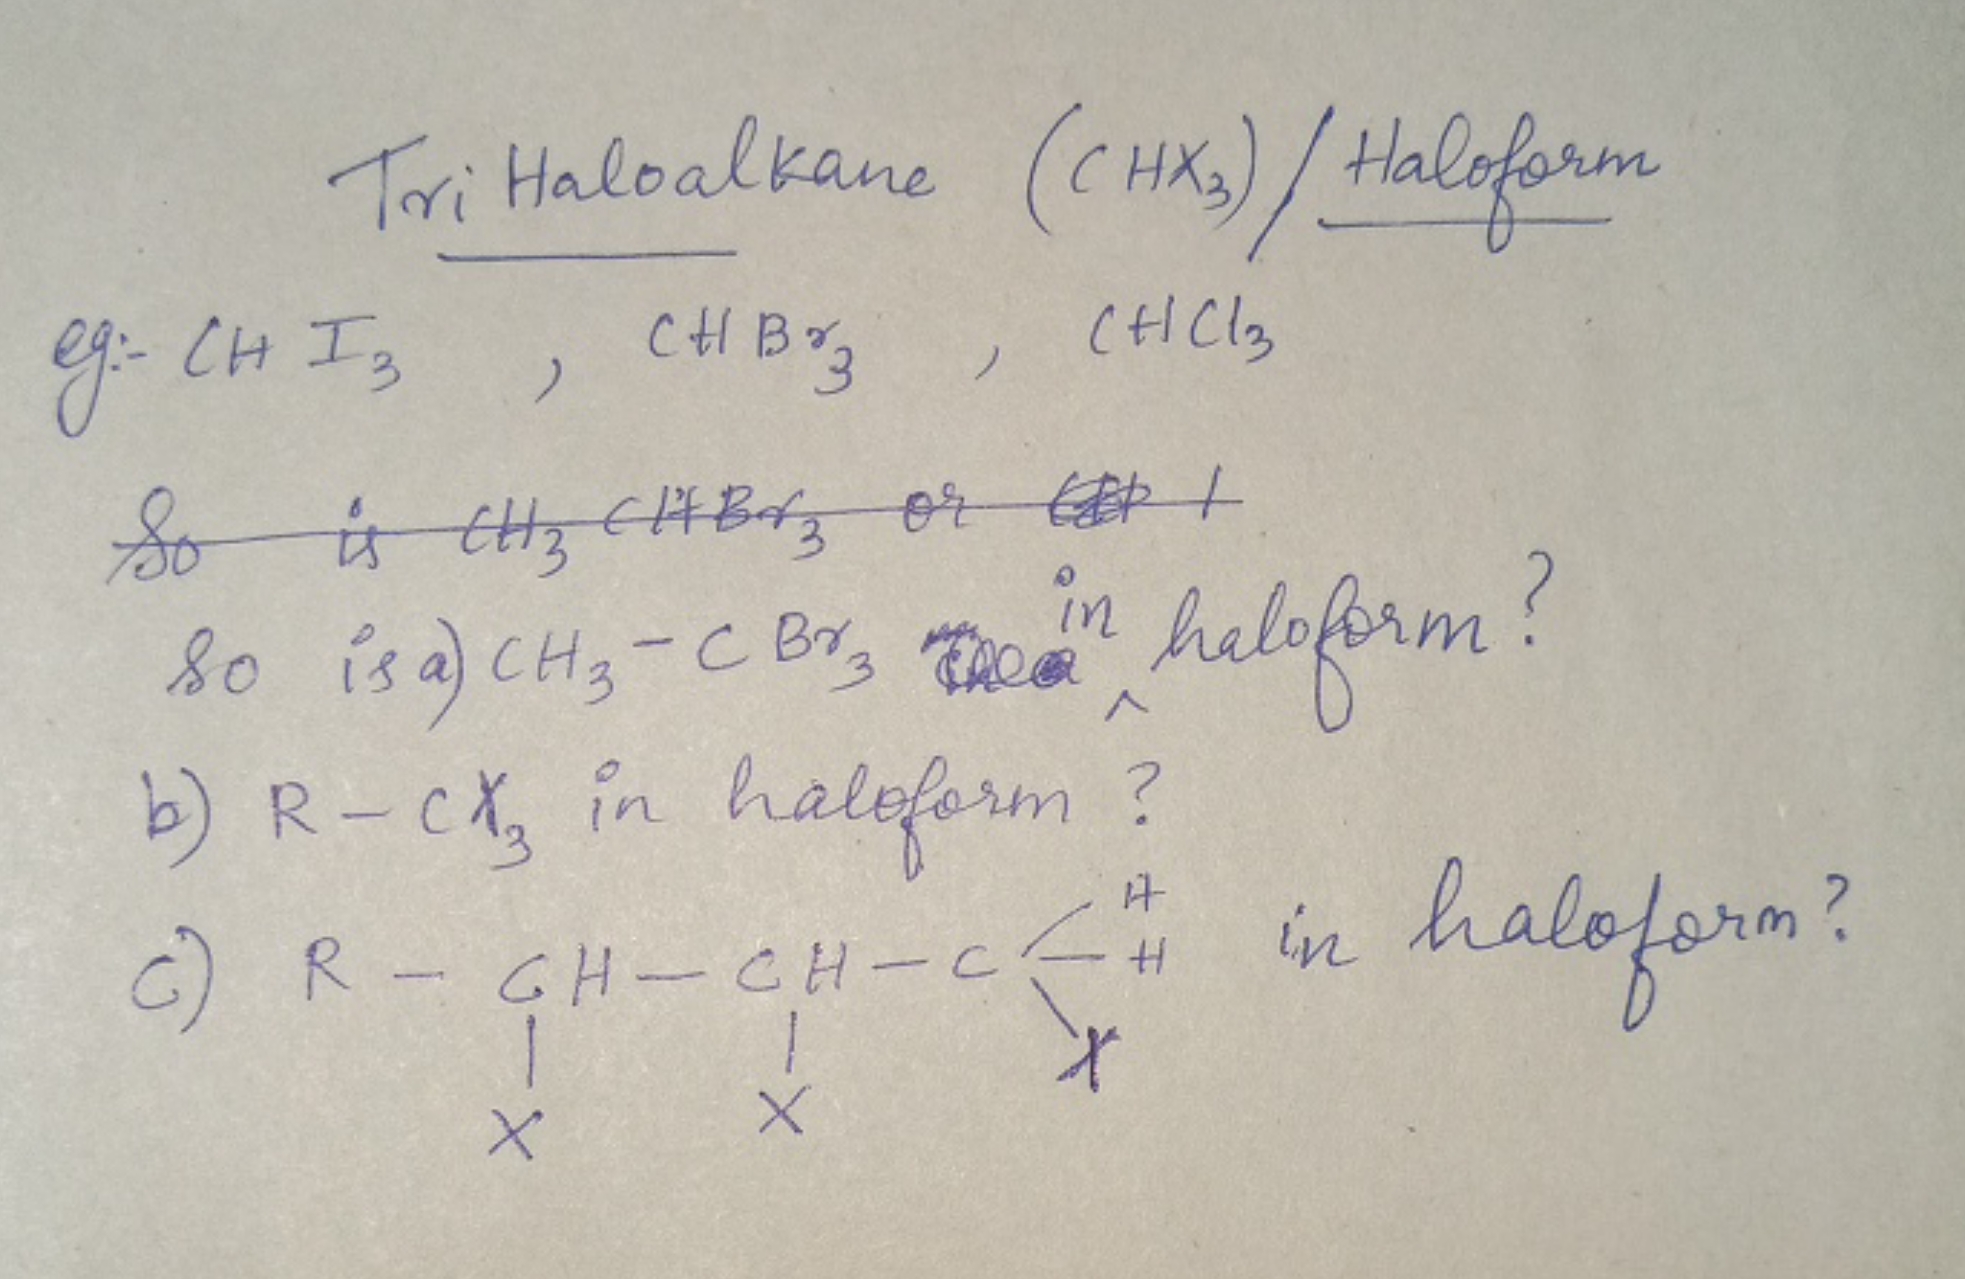 Tri Haloalkane (CHX₃)/Haloform
eg:- CHI₃ , CHBr₃ , CHCl₃
So is CH₃ CHBr₃ or
So is a) CH₃-CBr₃ in haloform?
b) R-CX₃ in haloform?
c) R - CH - CH - C H
H in haloform?
X X X